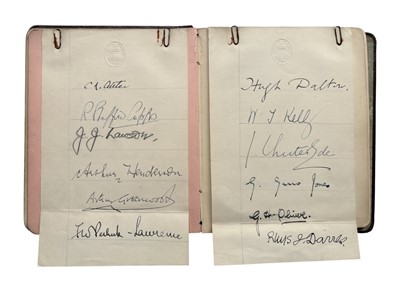 R Stafford Cripps
J. J. Lawson.
Arthur Henderson
Arthur Greenwood
F W Pethick-Lawrence
Hugh Dalton.
W T Kelly
J Chuter Ede
G. H. Oliver.
Rhys J. Davies